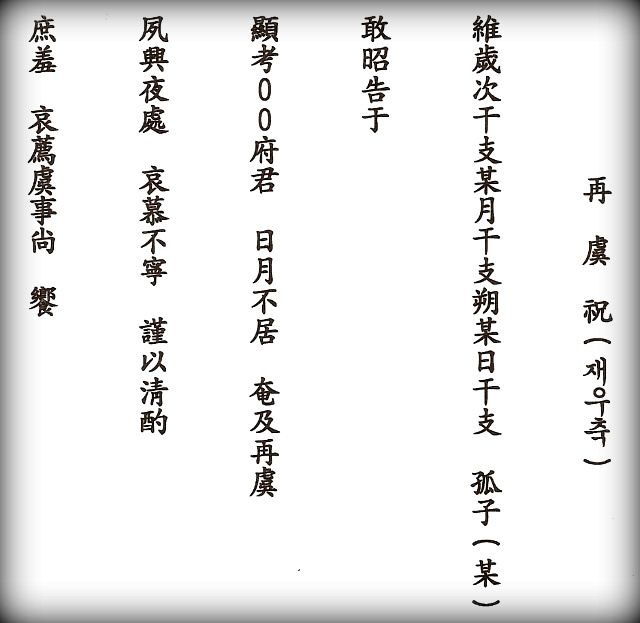 再 虞 祝(재우축)
維歲次干支某月干支朔某日干支 孤子(某)
敢昭告于
顯考00府君 日月不居 奄及再虞
夙興夜處 哀慕不寧 謹以淸酌
庶羞 哀薦虞事尙 饗